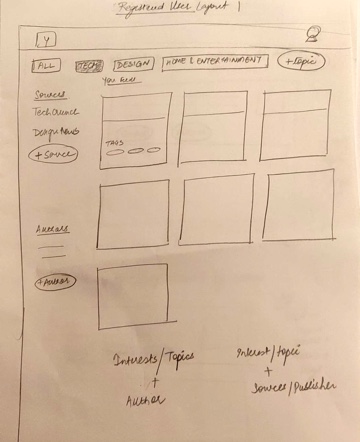 Registered User Layout 1
Y
ALL TECH DESIGN HOME & ENTERTAINMENT +Topic
Sources
TechCrunch
+Source
TAGS
Authors
+Author
Interests/Topics
+
Author
Interest/Topic
+
Sources/Publisher